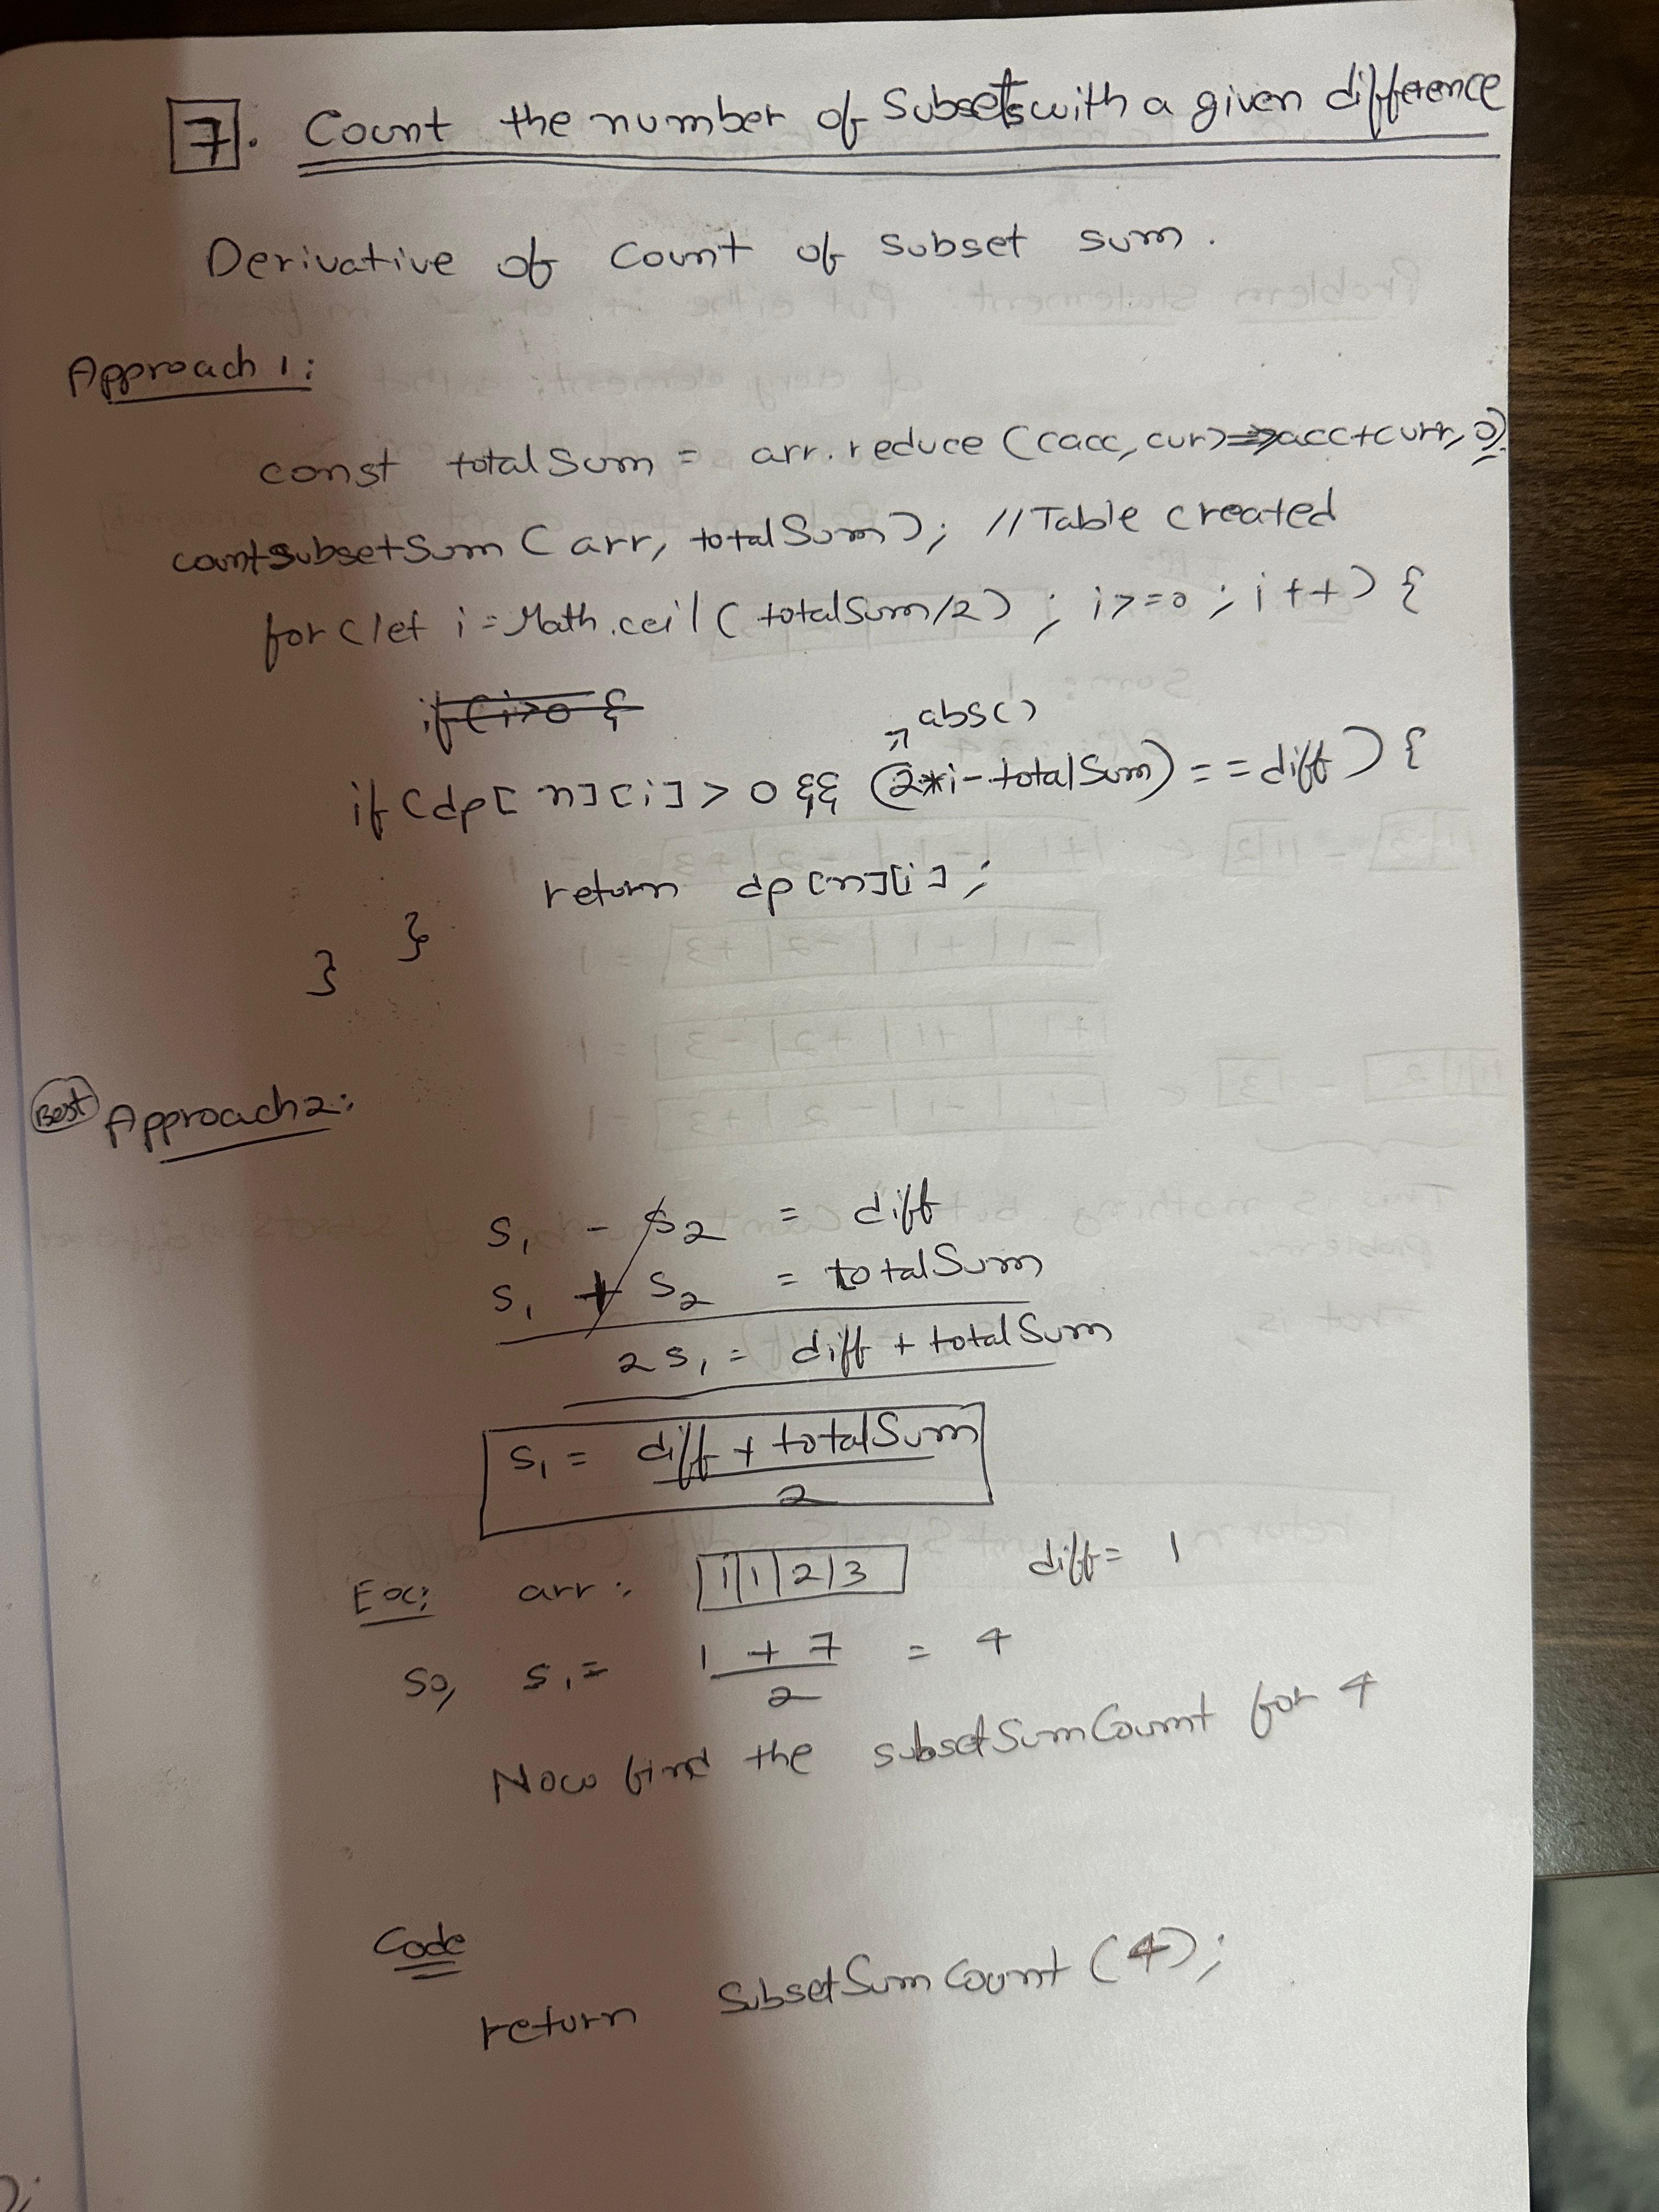 7. Count the number of Subsets with a given difference
Derivative of Count of subset sum.
Approach 1:
const totalSum = arr.reduce((acc, cur)=>acc+curr, 0);
countSubsetSum(arr, totalSum); //Table created
for(let i=Math.ceil(totalSum/2); i>=0; i++) {
if(i>0 &
abs()
if(dp[n][i] > 0 && (2*i-totalSum) == diff) {
return dp[n][i];
}
}
Best Approach 2:
S1 - S2 = diff
S1 + S2 = totalSum
2S1 = diff + totalSum
S1 = diff + totalSum
2
Ex: arr: 1|1|2|3 diff = 1
So, S1 = 1 + 7 = 4
2
Now find the subsetSumCount for 4
Code
return SubsetSumCount(4);